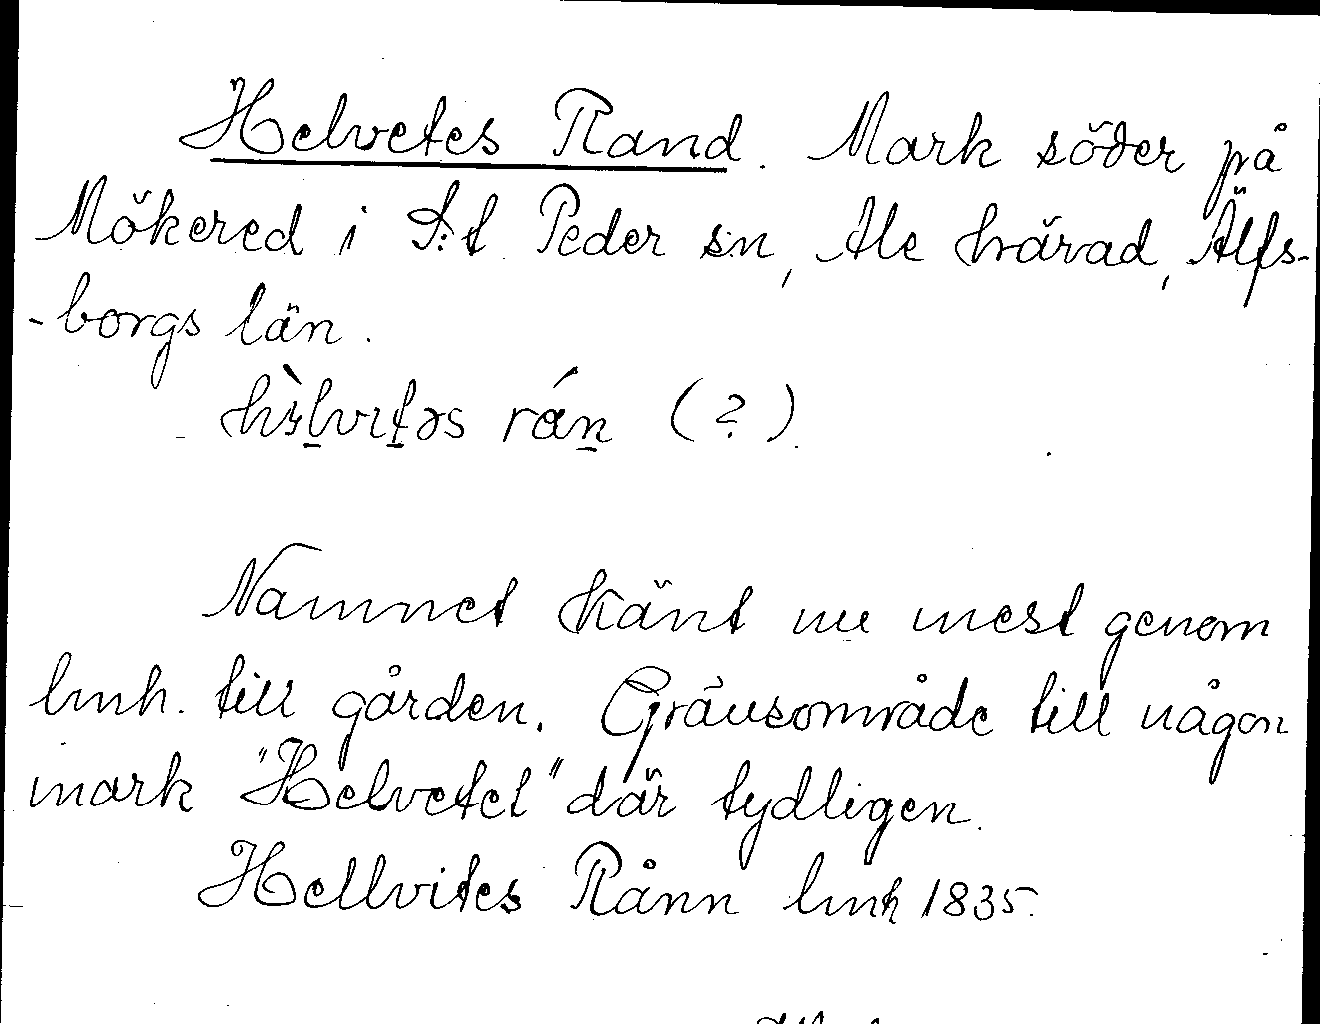 Helvetes Rand. Mark söder på
Mökered i S:t Peder sn, Ale härad, Älfs-
-borgs län.
rán (?)
Namnet känt nu mest genom
lmh. till gården. Gränsområde till någon
mark "Helvetet" där tydligen.
Hellvites Rånn lmh 1835.